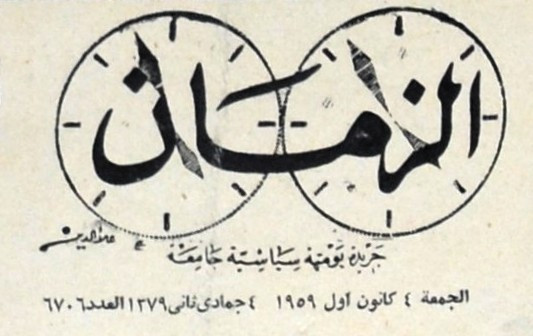 الزمان
علاء الدين
جريدة يومية سياسية جامعة
الجمعة ٤ كانون اول ١٩٥٩ ٤ جمادى ثانى ١٣٧٩ العدد ٦٧٠٦